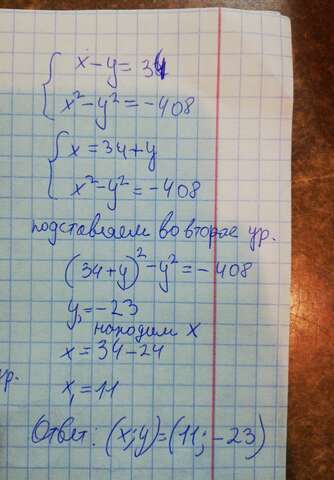 x-y=34
x²-y²=-408
x=34+y
x²-y²=-408
подставляем во второе ур.
(34+y)²-y²=-408
y₁=-23
находим x
x=34-24
x₁=11
ур.
Ответ: (x;y)=(11;-23)